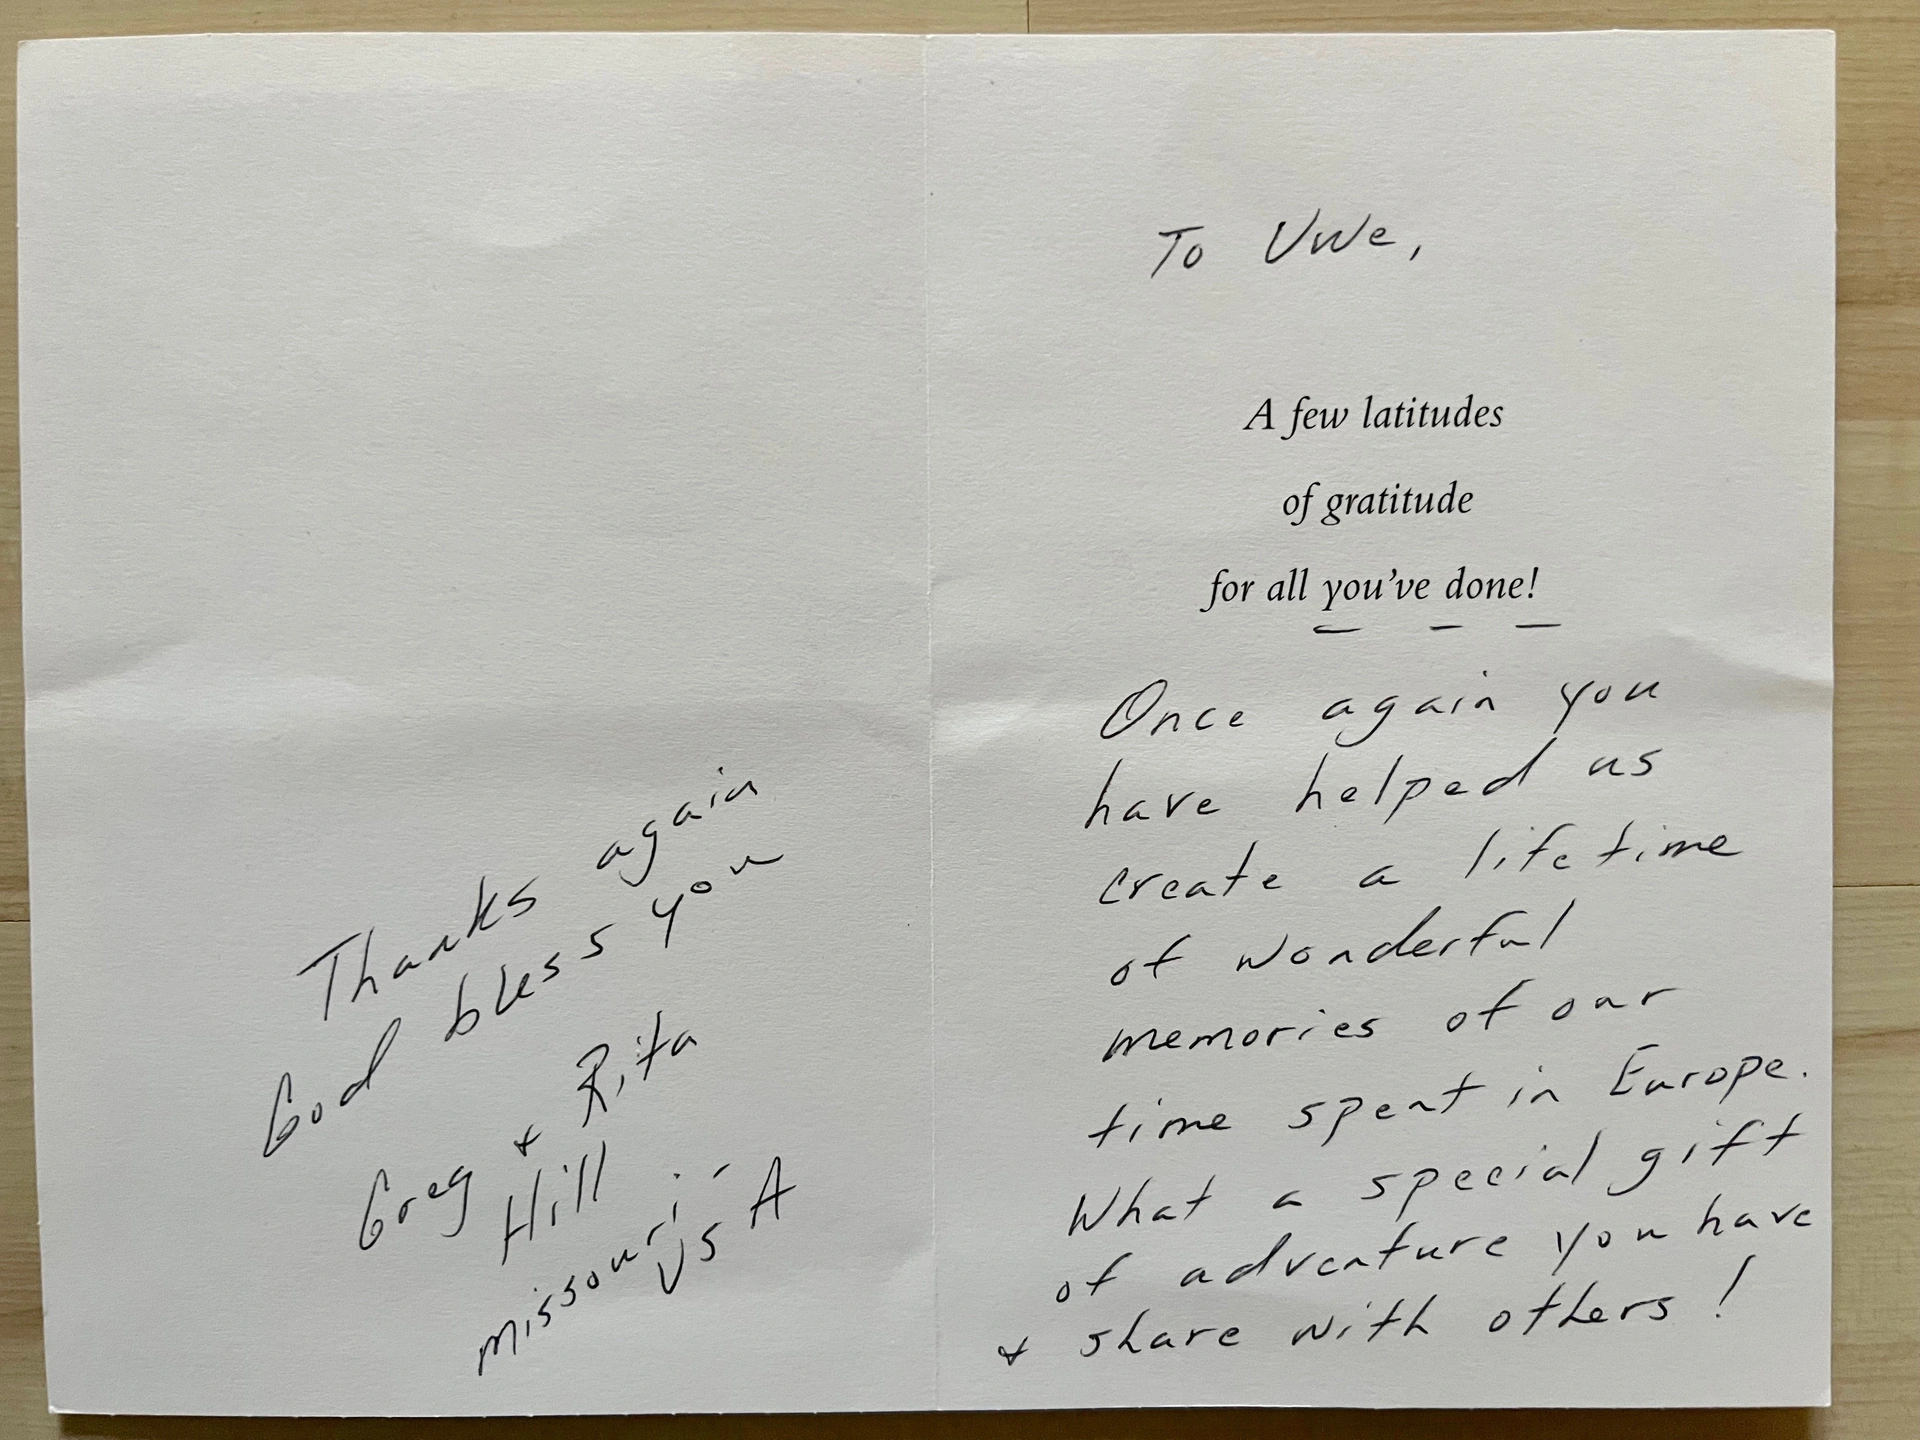 To Uwe,
A few latitudes
of gratitude
for all you've done!
Once again you
have helped us
create a lifetime
of wonderful
memories of our
time spent in Europe.
What a special gift
of adventure you have
& share with others!
Thanks again
God bless you
Greg & Rita
Hill
Missouri -
USA